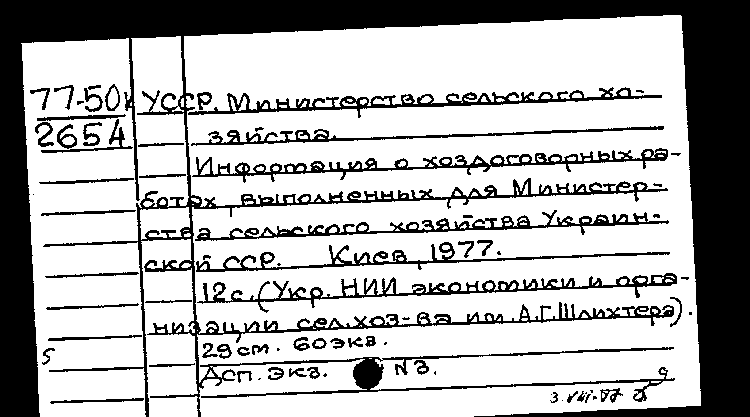 77-50к УССР. Министерство сельского хо-
2654 зяйства.
Информация о хоздоговорных ра-
ботах, выполненных для Министер-
ства сельского хозяйства Украин-
ской ССР. Киев, 1977.
12с. (Укр. НИИ экономики и орга-
низации сел.хоз-ва им. А.Г.Шлихтера).
29см. 60экз.
Дсп. Экз. №3.
5
3.VIII-77